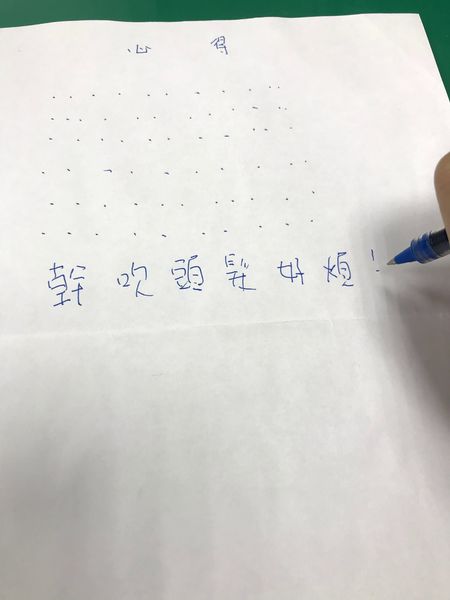 心得
幹吹頭髮好煩！